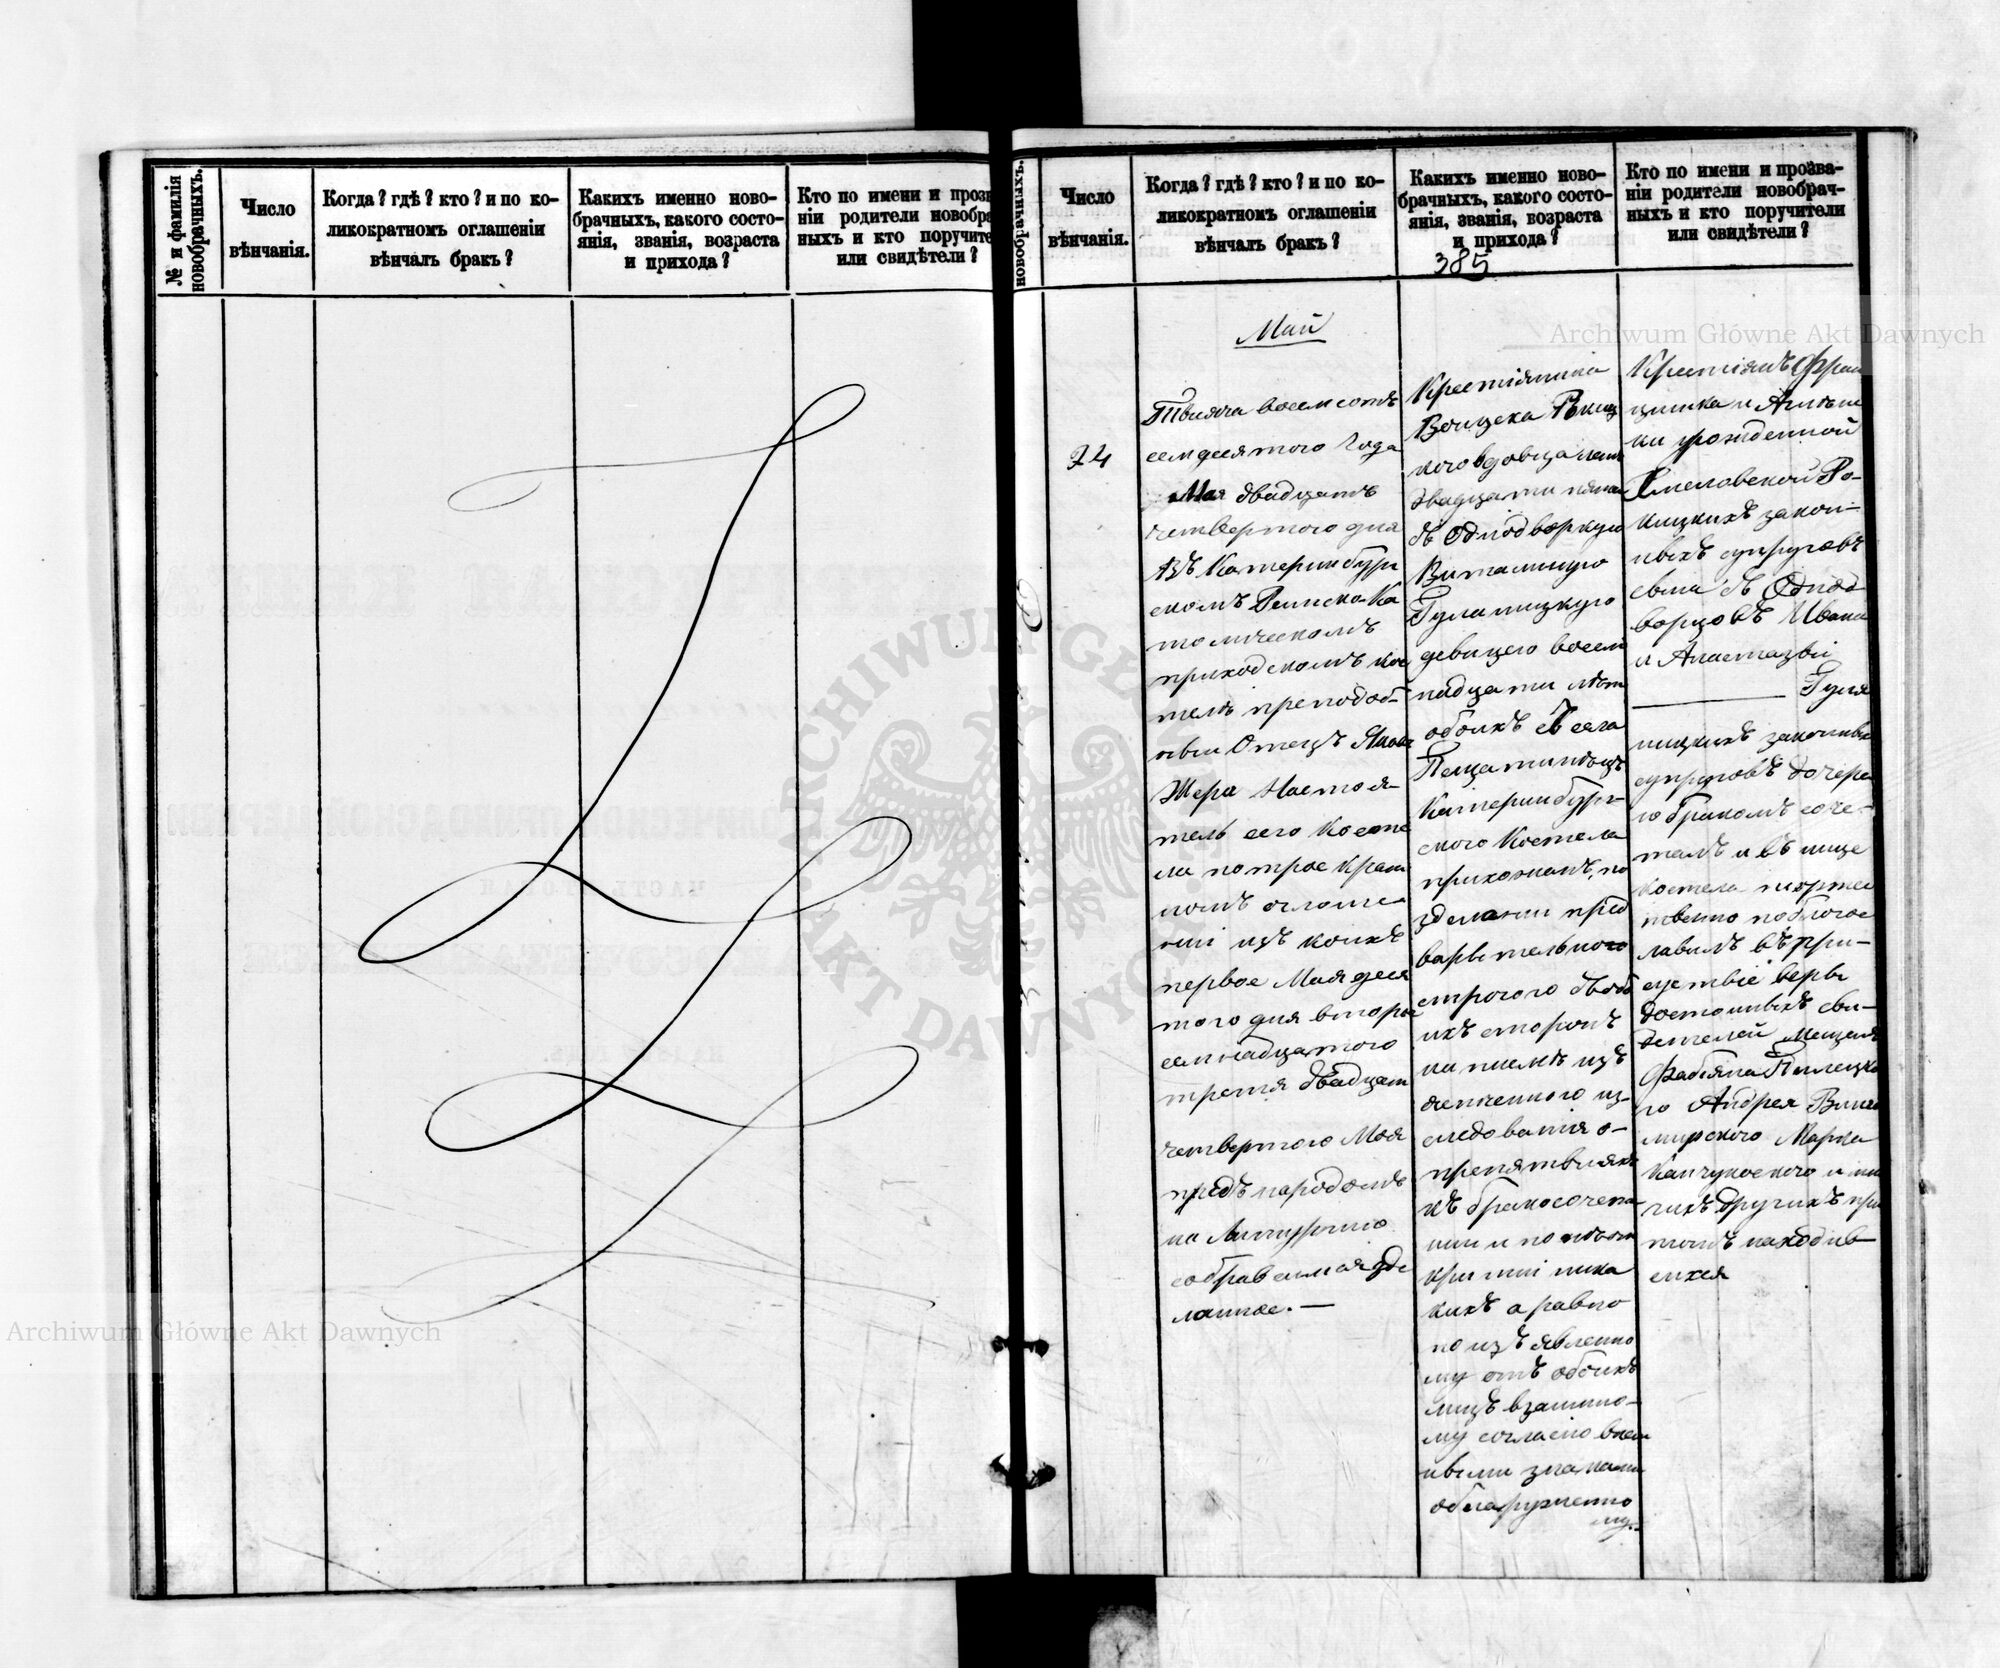 № и фамилія
новобрачныхъ.
Число
вѣнчанія.
Когда? гдѣ? кто? и по ко-
ликократномъ оглашеніи
вѣнчалъ бракъ?
Какихъ именно ново-
брачныхъ, какого состо-
янія, званія, возраста
и прихода?
Кто по имени и прозв
ніи родители новобра
ныхъ и кто поручите
или свидѣтели?
новобрачныхъ.
Число
вѣнчанія.
Когда? гдѣ? кто? и по ко-
ликократномъ оглашеніи
вѣнчалъ бракъ?
Какихъ именно ново-
брачныхъ, какого состо-
янія, званія, возраста
и прихода?
385
Кто по имени и прозва-
ніи родители новобрач-
ныхъ и кто поручители
или свидѣтели?
24
Май
Тысяча восемсотъ
семдесятого Года
Мая двадцать
четвертого дня
въ Катеринбург
скомъ Римско-Ка
толическомъ
приходскомъ кос
телѣ преподоб-
ный Отецъ
Жера Настоя-
тель сего Косте
ла по трое крат
номъ оглаше-
ніи изъ коихъ
первое Мая деся
того дня второе
семнадцатого
третія двадцать
четвертого Мая
предъ народомъ
на Литургію
собравшимся зде
ланное. —
Крестіянина
Войцеха
кого вдовца
двадцати пяти
съ Однодворкую
Виталиную
Гуляницкую
девицею восем
надцати лѣт
обоихъ съ села
Катеринбург-
ского Костела
прихожанъ, по
зделании пред
варительного
строгого съ обо
ихъ сторонъ
на писмѣ изъ
изс-
ледованія о-
препятвіяхъ
къ бракосочета
нии и по неот
крытіи ника
кихъ а равно
по изъявленно
му отъ обоихъ
лицъ взаимно-
му согласію внеш
ными знаками
обнаруженно
му.-
Крестіянъ Фран
цишка и
ки урожденной
Хмеловской Ро-
кицкихъ закон-
ныхъ супруговъ
сына съ Однод
ворцовъ Ивана
и Анастазіи
Гуля
ницкихъ законных
супруговъ дочерь
ю бракомъ соче-
талъ и въ лице
костела торжес
твенно поблогос
лавилъ въ при-
сутствіе верьı
достойныхъ сви-
детелей Мещанъ
Фабіяна Пилецко
го Андрея
Марка
и мно
гихъ другихъ при
томъ находив
шихся
Archiwum Główne Akt Dawnych
Archiwum Główne Akt Dawnych
ARCHIWUM GŁÓWNE AKT DAWNYCH